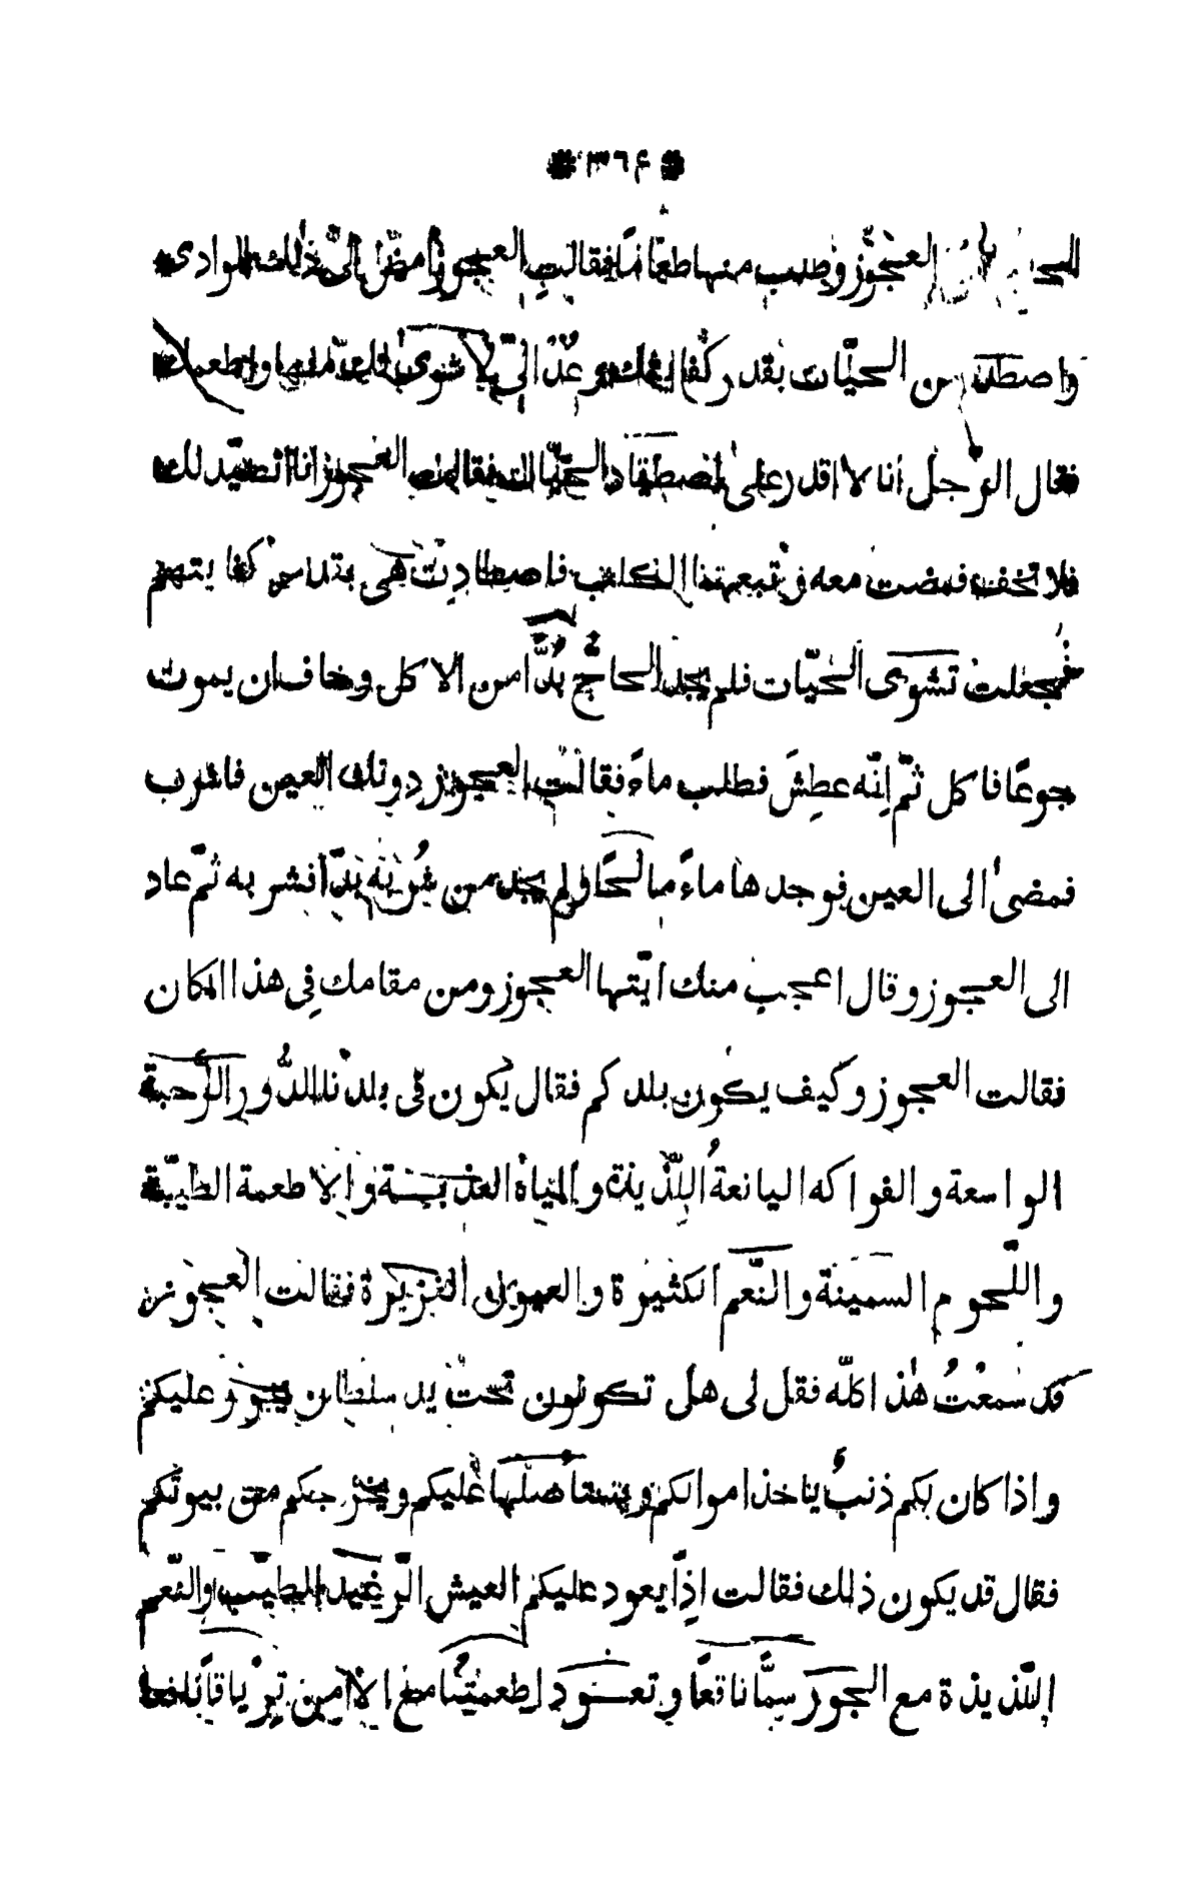 * ٣٦٤ *
العجوز وطلب منها طعامًا فقالتِ العجوز امض الى ذلك الوادى
واصطد من الحيّات بقدر كفايتك وعُدْ الىّ لاشوى لك منها واطعمك
فقال الرّجل انا لا اقدر على اصطياد الحيّات فقالت العجوز انا اتصيّد لك
فلا تخف فمضت معه وتبعهما الكلب فاصطادت هى بقدر كفايتهم
فجعلت تشوى الحيّات فلم يجد الحاجّ بُدًّا من الاكل وخاف ان يموت
جوعًا فاكل ثمّ اِنّه عطِشَ فطلب ماءً فقالت العجوز دونك العين فاشرب
فمضىٰ الى العين فوجد ها ماءً مالحًا ولم يجد من شُربه بدّاً فشربه ثمّ عاد
الى العجوز وقال اعجب منك ايّتها العجوز ومن مقامك فِى هذا المكان
فقالت العجوز وكيف يكون بلدكم فقال يكون فى بلدنا الدُّور الرّحبة
الواسعة والفواكه اليانعة اللّذيذة والمياه العذبــة والاطعمة الطيّبة
واللّحوم السمينة والنّعم الكثيرة والعيون الغزيرة فقالت العجوز
قد سمعْتُ هٰذا كلّه فقل لى هل تكونون تحت يد سلطان يجور عليكم
واذا كان بكم ذنبٌ ياخذ اموالكم ويستاصلها عليكم ويخرجكم من بيوتكم
فقال قد يكون ذلك فقالت اِذًا يعود عليكم العيش الرّغيد الطيّب والنّعم
اللّذيذة مع الجور سمًّا ناقعًا وتعــود اطعمتنا مع الامن تِرْياقًا نافعا